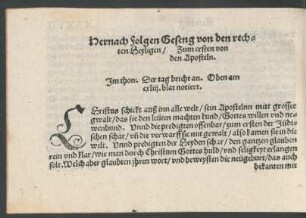 Hernach folgen Geseng von den rech-
ten Heyligen / Zum ersten von
den Aposteln.
Im thon. Der tag bricht an. Oben am
xliij. blat notiert.
CHristus schickt auß inn alle welt / sein Aposteln mit grosser
gwalt / das sie den leüten machten kund / Gottes willen und ne-
wenbund. Unnd die predigten offenbar / zum ersten der Jüdi-
schen schar / uñ die verwarffs mit gewalt / also kamen sie in die
welt. Unnd predigten der Heyden schar / den gantzen glauben
rein und klar / wie man durch Christum Gottes huld / und seligkeyt erlangen
solt. Welch aber glaubten jhrem wort / und beweysten die neügeburt / das auch
bekanten mit